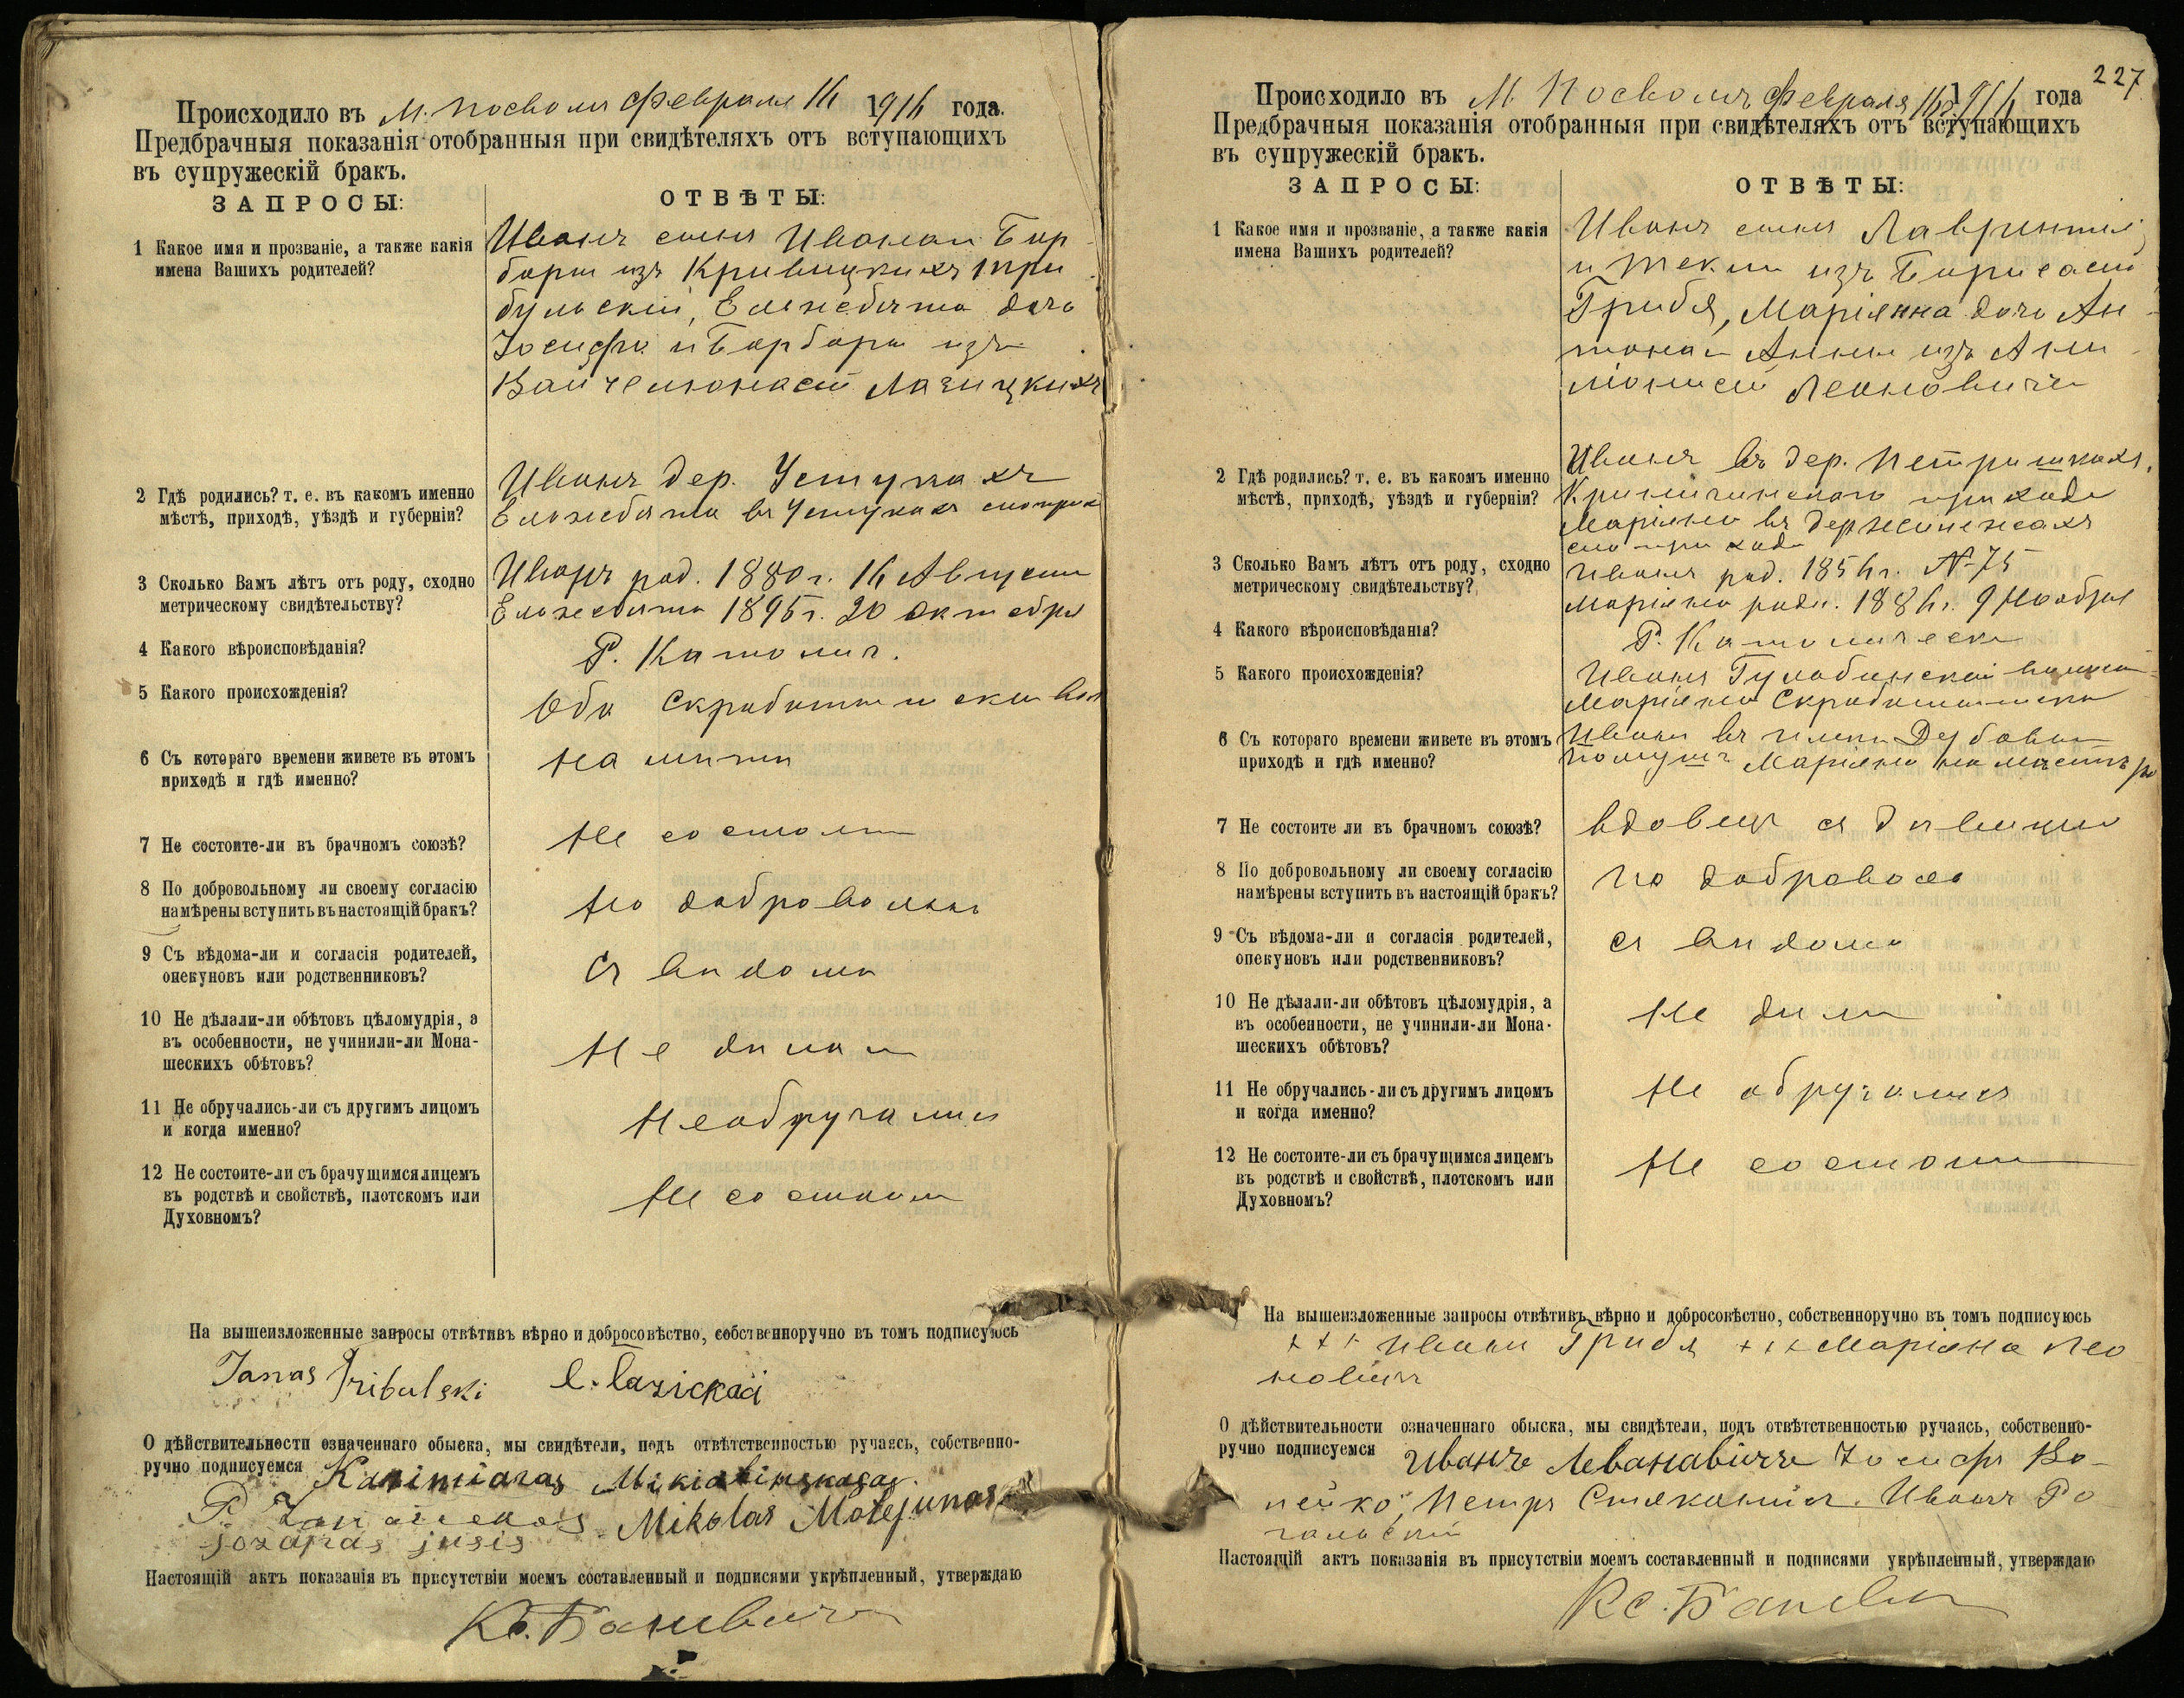 Происходило въ м. Посволь Февраля 16 1916 года.
Предбрачныя показанія отобранныя при свидѣтеляхъ отъ вступающихъ
въ супружескій бракъ.
ЗАПРОСЫ:
ОТВѢТЫ:
1 Какое имя и прозваніе, а также какія
имена Вашихъ родителей?
Иванъ сынъ Ивана и Бар
бары изъ Кривицкихъ Три
бульскій, Ельжбета дочь
Іосифа и Барбары изъ
Лазицкихъ
2 Гдѣ родились? т. е. въ какомъ именно
мѣстѣ, приходѣ, уѣздѣ и губерніи?
Иванъ дер. Устукахъ
Ельжбета въ Устукахъ
3 Сколько Вамъ лѣтъ отъ роду, сходно
метрическому свидѣтельству?
Иванъ род. 1880 г. 16 Августа
Ельжбета 1895 г. 20 октября
4 Какого вѣроисповѣданія?
Р. Католич.
5 Какого происхожденія?
Оба
6 Съ котораго времени живете въ этомъ
приходѣ и гдѣ именно?
На
7 Не состоите-ли въ брачномъ союзѣ?
Не состоим
8 По добровольному ли своему согласію
намѣрены вступить въ настоящій бракъ?
По добровольн
9 Съ вѣдома-ли и согласія родителей,
опекуновъ или родственниковъ?
Съ вѣдома
10 Не дѣлали-ли обѣтовъ цѣломудрія, а
въ особенности, не учинили-ли Мона-
шескихъ обѣтовъ?
Не дѣлали
11 Не обручались-ли съ другимъ лицомъ
и когда именно?
Не обручались
12 Не состоите-ли съ брачущимся лицемъ
въ родствѣ и свойствѣ, плотскомъ или
Духовномъ?
Не состоим
На вышеизложенные запросы отвѣтивъ вѣрно и добросовѣстно, собственноручно въ томъ подписуюсь
Janas Tribulski
О дѣйствительности означеннаго обыска, мы свидѣтели, подъ отвѣтственностью ручаясь, собственно-
ручно подписуемся Kazimiaras
Mikolas Motejunas
jozapas jusis
Настоящій актъ показанія въ присутствіи моемъ составленный и подписями укрѣпленный, утверждаю
Кс. Баневич
227
Происходило въ М. Посволь Февраля 16 1916 года
Предбрачныя показанія отобранныя при свидѣтеляхъ отъ вступающихъ
въ супружескій бракъ.
ЗАПРОСЫ:
ОТВѢТЫ:
1 Какое имя и прозваніе, а также какія
имена Вашихъ родителей?
Иванъ сынъ Лаврентія
и Текли изъ
Грибя, Маріянна дочь Ан
тона и Анны изъ
Леановичъ
2 Гдѣ родились? т. е. въ какомъ именно
мѣстѣ, приходѣ, уѣздѣ и губерніи?
Иванъ въ дер. Петришкахъ
прихода
Маріянна въ дер
прихода
3 Сколько Вамъ лѣтъ отъ роду, сходно
метрическому свидѣтельству?
Иванъ род. 1856 г. № 75
Маріянна родн. 1886 г. 9 Ноября
4 Какого вѣроисповѣданія?
Р. Католическ
5 Какого происхожденія?
Иванъ
Маріянна
6 Съ котораго времени живете въ этомъ
приходѣ и гдѣ именно?
Иванъ въ
Маріянна на мѣстѣ
7 Не состоите ли въ брачномъ союзѣ?
вдовецъ съ дѣвицею
8 По добровольному ли своему согласію
намѣрены вступить въ настоящій бракъ?
по
9 Съ вѣдома-ли и согласія родителей,
опекуновъ или родственниковъ?
съ вѣдома
10 Не дѣлали-ли обѣтовъ цѣломудрія, а
въ особенности, не учинили-ли Мона-
шескихъ обѣтовъ?
Не
11 Не обручались-ли съ другимъ лицомъ
и когда именно?
Не обручались
12 Не состоите-ли съ брачущимся лицемъ
въ родствѣ и свойствѣ, плотскомъ или
Духовномъ?
Не состоим
На вышеизложенные запросы отвѣтивъ вѣрно и добросовѣстно, собственноручно въ томъ подписуюсь
+++ Иванъ Грибя +++ Маріяна Лео
новичъ
О дѣйствительности означеннаго обыска, мы свидѣтели, подъ отвѣтственностью ручаясь, собственно-
ручно подписуемся Иванъ Леванавичъ Іосифъ Во-
нейко, Петръ Иванъ Ро
гальскій
Настоящій актъ показанія въ присутствіи моемъ составленный и подписями укрѣпленный, утверждаю
Кс. Баневи